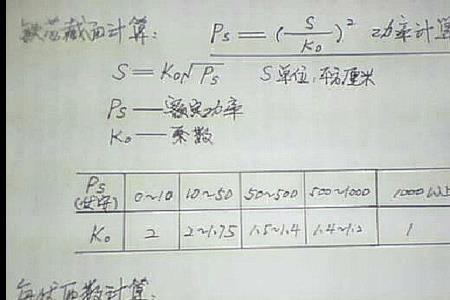 铁芯截面计算: Ps=(S/Ko)² 功率计算
S=Ko√Ps S单位,平方厘米
Ps——额定功率
Ko——系数
Ps 0~10 10~50 50~500 500~1000 1000以上
(伏安)
Ko 2 2~1.75 1.5~1.4 1.4~1.2 1
每伏匝数计算: